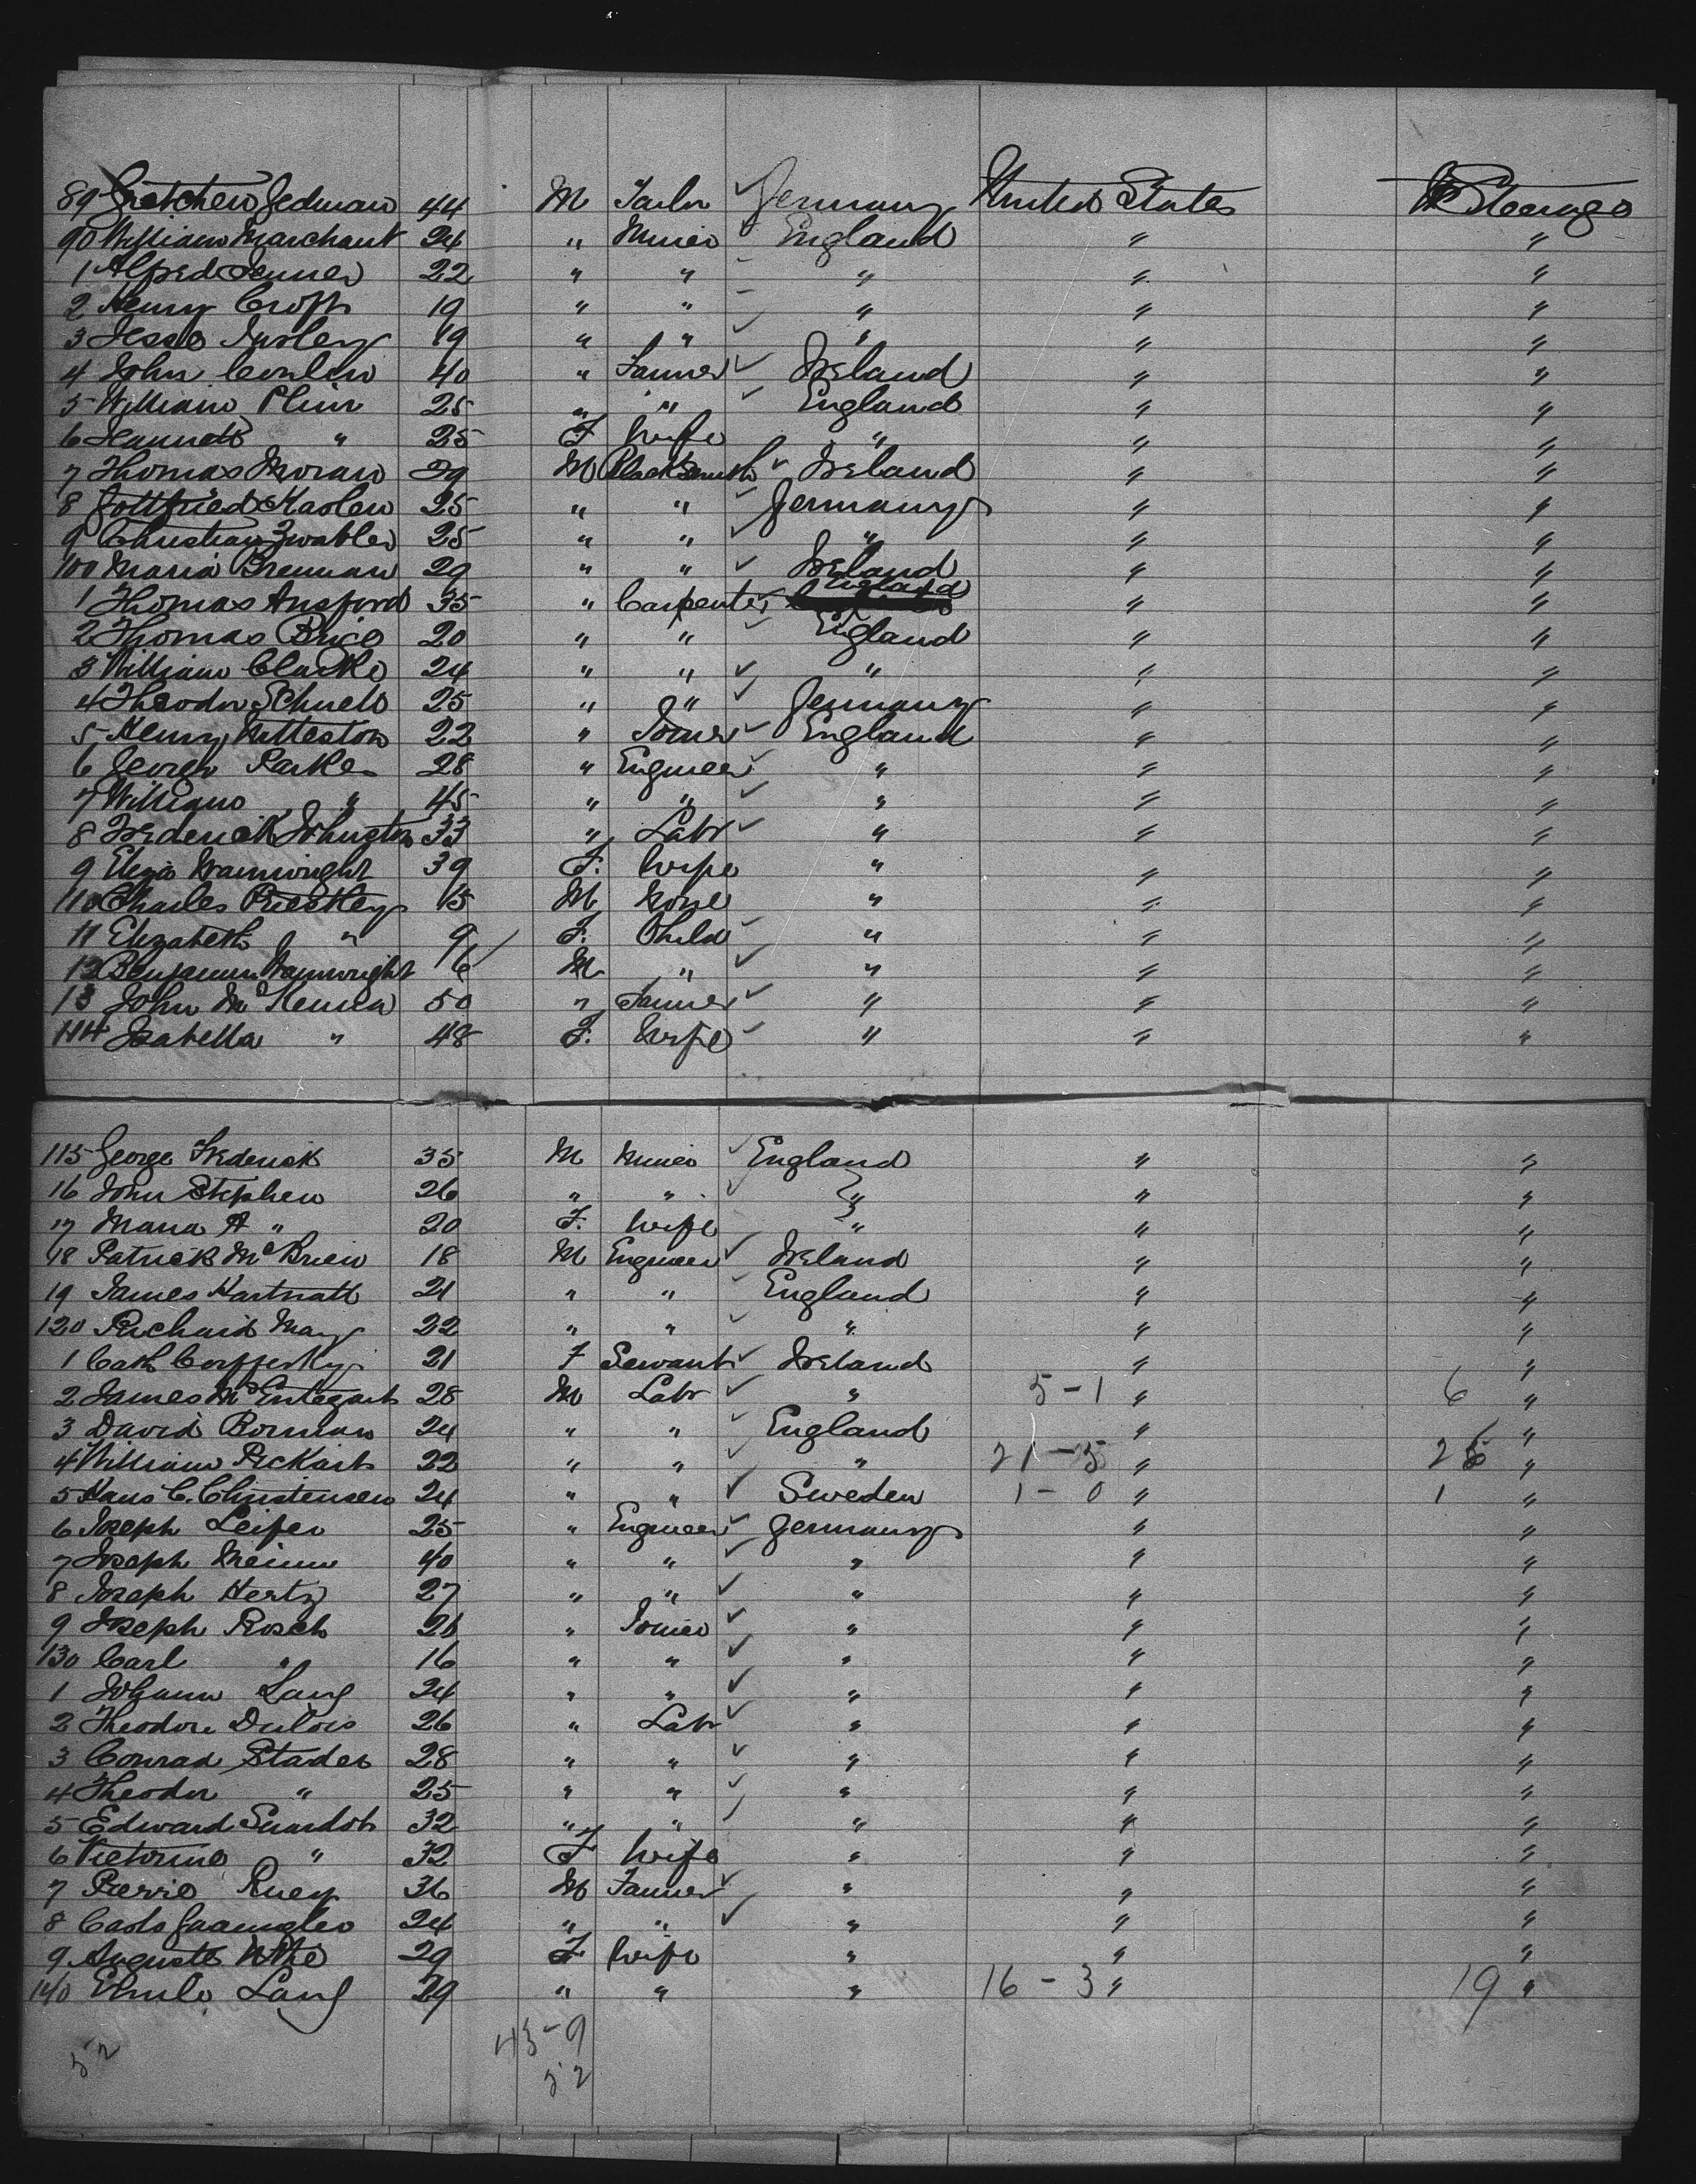 89 Gretchen Jedman 44 M Tailor ✓ Germany United States Steerage
90 William Marchant 24 " Miner ✓ England " "
1 Alfred Jenner 22 " " - " " "
2 Henry Croft 19 " " - " " "
3 Jesse 19 " " ✓ " " "
4 John Conlin 40 " Farmer ✓ Ireland " "
5 William 25 " " ✓ England " "
6 Hannah " 25 F Wife " " "
7 Thomas Moran 29 M Blacksmith ✓ Ireland " "
8 Gottfried Haslen 25 " " ✓ Germany " "
9 Christian 25 " " ✓ " " "
100 Maria Brennan 29 " " ✓ Ireland " "
1 Thomas Ansford 35 " Carpenter ✓ England " "
2 Thomas Brice 20 " " ✓ England " "
3 William Clarke 24 " " ✓ " " "
4 Theodor 25 " " ✓ Germany " "
5 Henry 22 " Joiner ✓ England " "
6 George Parker 28 " Engineer ✓ " " "
7 William " 45 " " ✓ " " "
8 Frederick Johnston 33 " Labr ✓ " " "
9 Eliza Wainwright 39 F. Wife " " "
110 Charles Priestley 15 M None " " "
11 Elizabeth " 9 F. Child ✓ " " "
12 Benjamin Wainwright 6 M " ✓ " " "
13 John McKenna 50 " Farmer ✓ " " "
114 Isabella " 48 F. Wife ✓ " " "
115 George Frederick 35 M Miner ✓ England " "
16 John Stephen 26 " " ✓ " " "
17 Maria A " 20 F. Wife " " "
18 Patrick McBrien 18 M Engineer ✓ Ireland " "
19 James 21 " " ✓ England " "
120 Richard May 22 " " ✓ " " "
1 Cath 21 F Servant ✓ Ireland " "
2 James McEntegart 28 M Labr ✓ " 5-1 " 6 "
3 David Borman 24 " " ✓ England " "
4 William Peckart 22 " " ✓ " 21-5 " 26 "
5 Hans C. Christensen 24 " " ✓ Sweden 1-0 " 1 "
6 Joseph Leifer 25 " Engineer ✓ Germany " "
7 Joseph 40 " " ✓ " " "
8 Joseph Hertz 27 " " ✓ " " "
9 Joseph Rosch 26 " Joiner ✓ " " "
130 Carl " 16 " " ✓ " " "
1 Johann Lang 24 " " ✓ " " "
2 Theodore Dubois 26 " Labr ✓ " " "
3 Conrad Stader 28 " " ✓ " " "
4 Theodor " 25 " " ✓ " " "
5 Edward 32 " " ✓ " " "
6 Victorine " 32 F Wife " " "
7 Pierre Ruey 36 M Farmer ✓ " " "
8 24 " " ✓ " " "
9 Auguste 29 F Wife " " "
140 Emile Lang 29 " " " 16-3 " 19 "
52 43-9
52